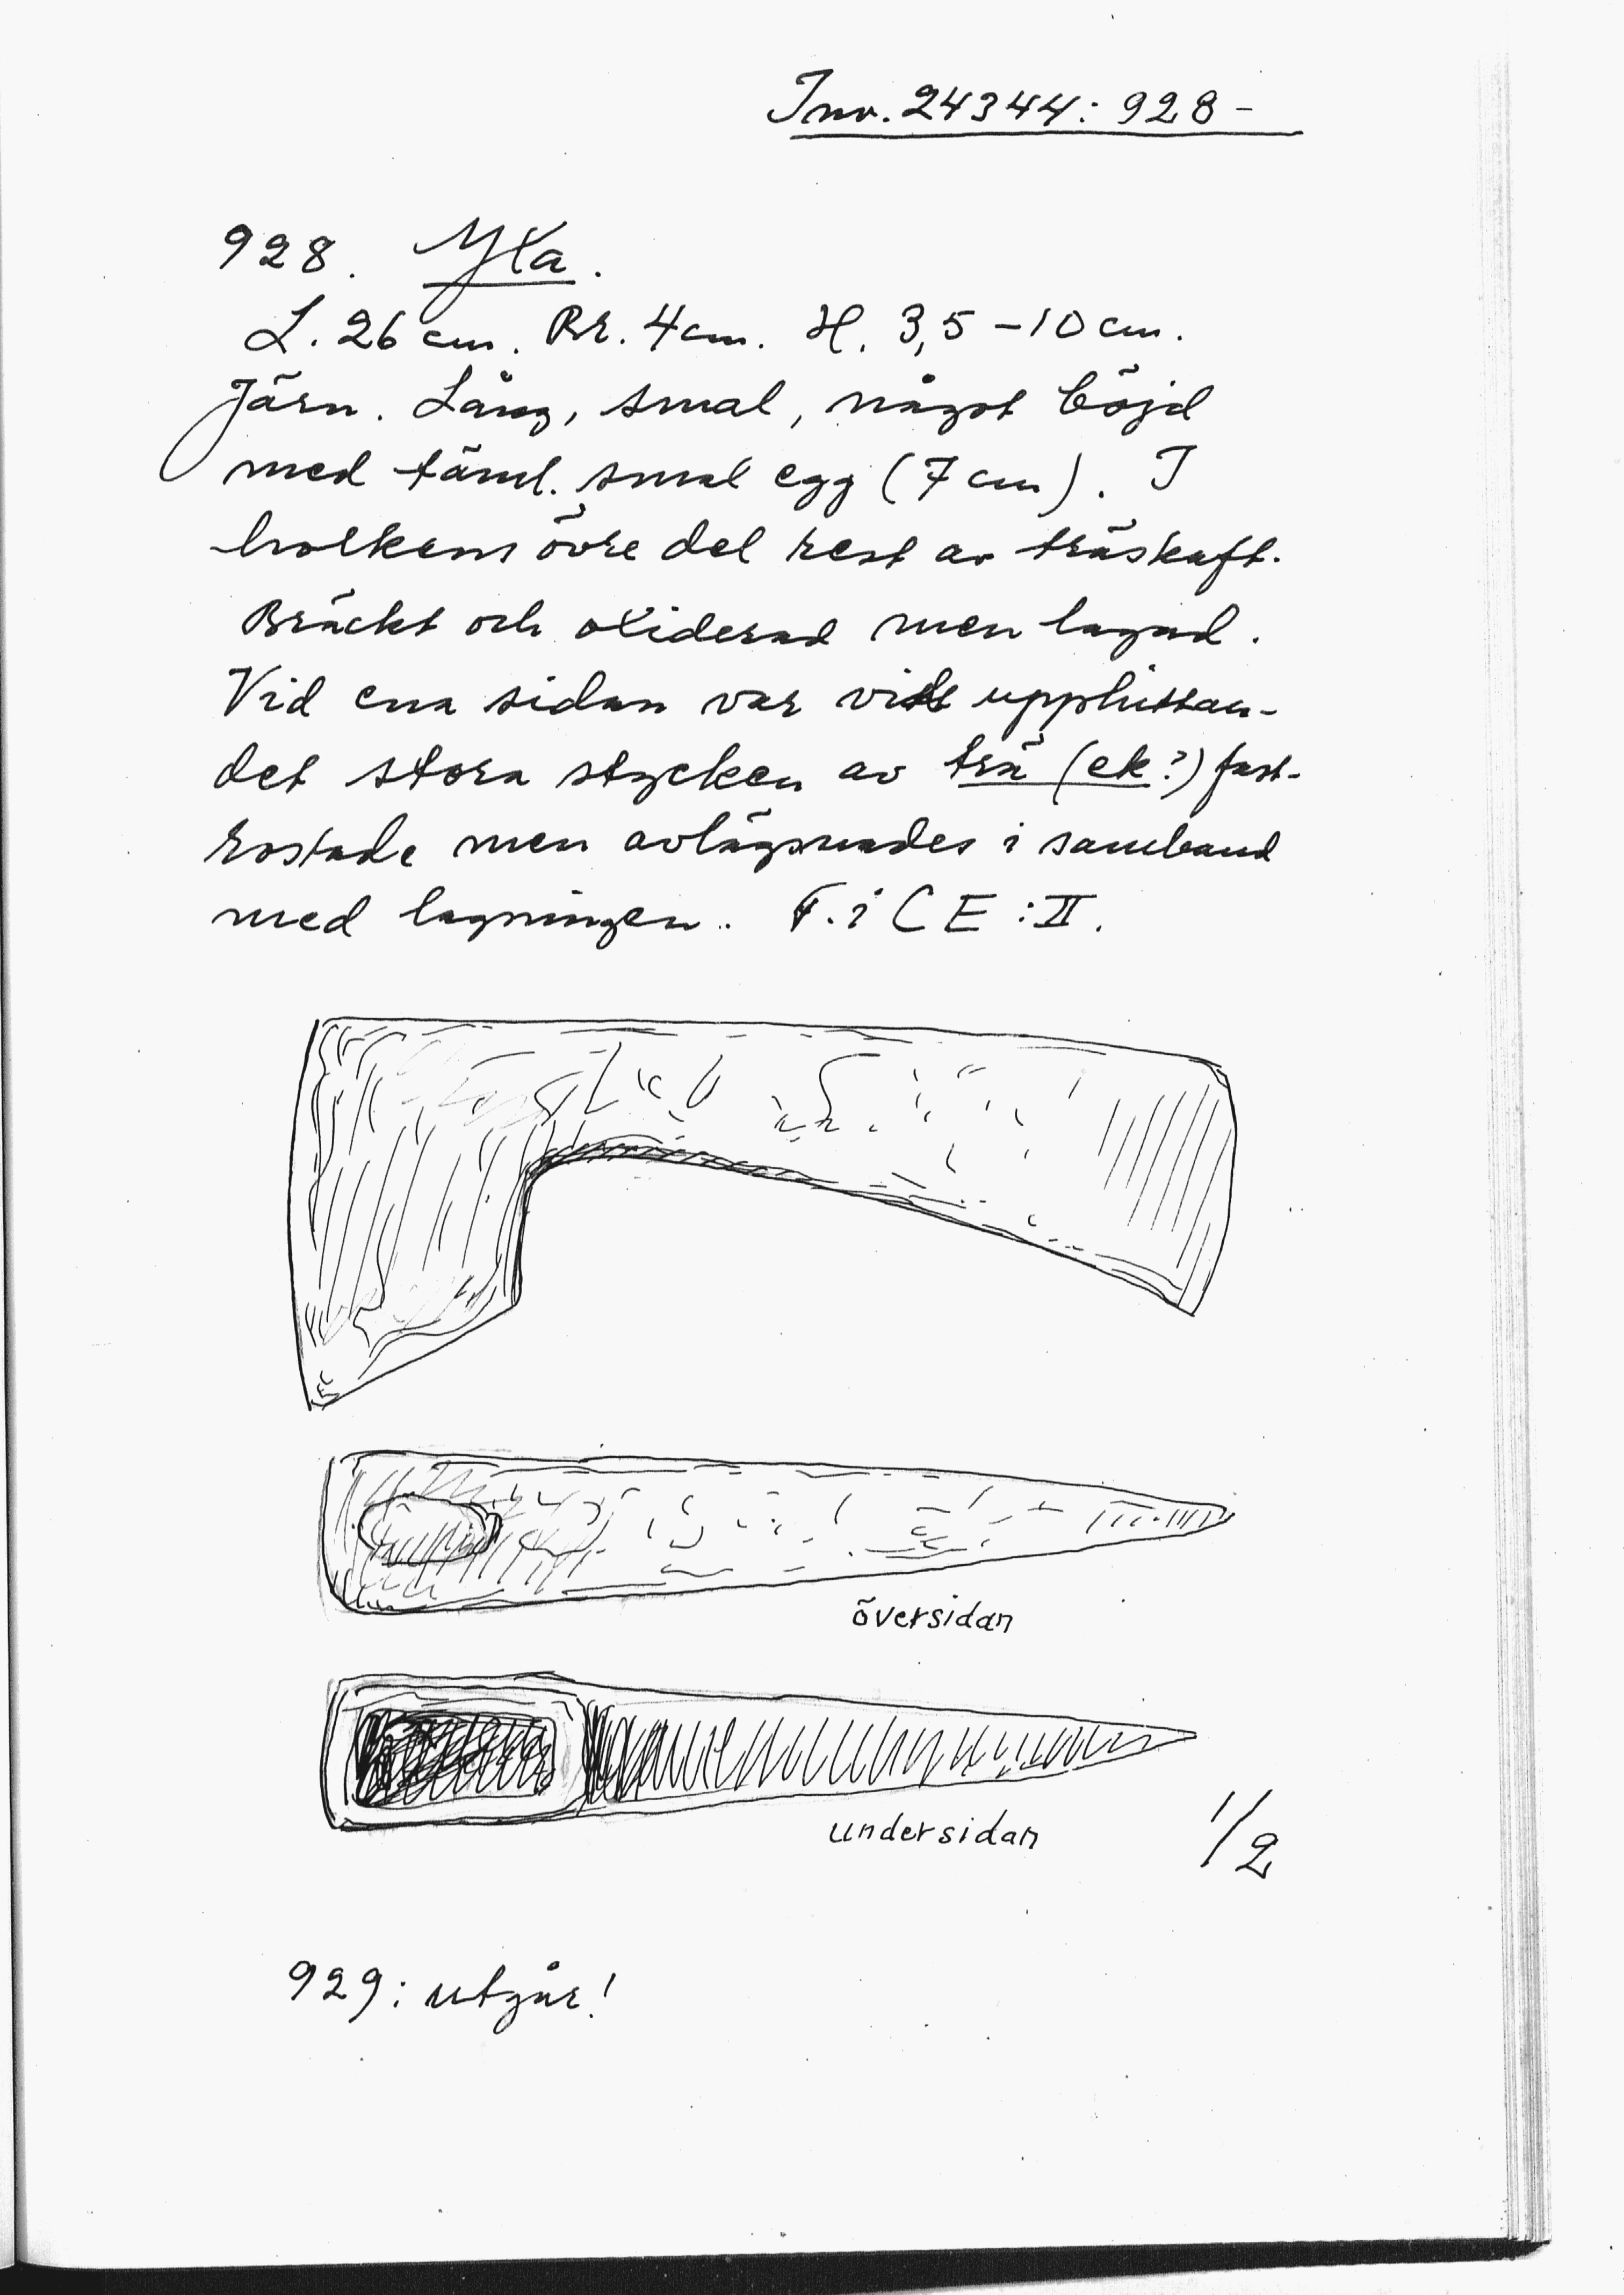 Inv. 24344: 928-
928. Yxa.
L. 26 cm. Br. 4 cm. H. 3,5-10 cm.
Järn. Lång, smal, något böjd
med täml. smal egg (7 cm). I
holkens övre del rest av träskaft.
Bräckt och oxiderad men lagad.
Vid ena sidan var vid upphittan-
det stora stycken av trä (ek?) fast-
rostade men avlägsnades i samband
med lagningen. F. i CE:II.
översidan
undersidan
1/2
929: utgår!